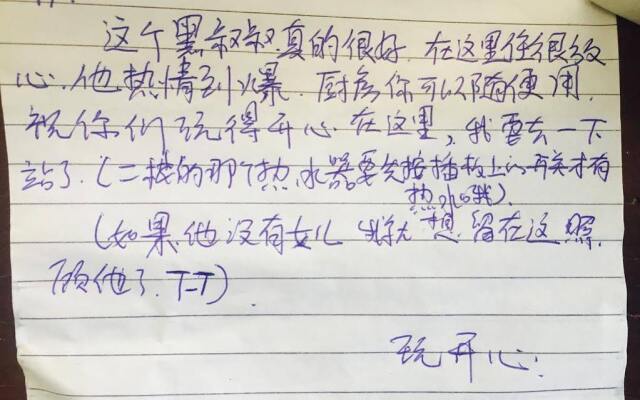 这个黑叔叔真的很好. 在这里住很放
心. 他热情到爆. 厨房你可以随便用.
祝你们玩得开心 在这里, 我要去一下
站了. (二楼的那个热水器要先按插板上的开关才有
热水哦).
(如果他没有女儿 我就想留在这照
顾他了. T-T).
玩开心: